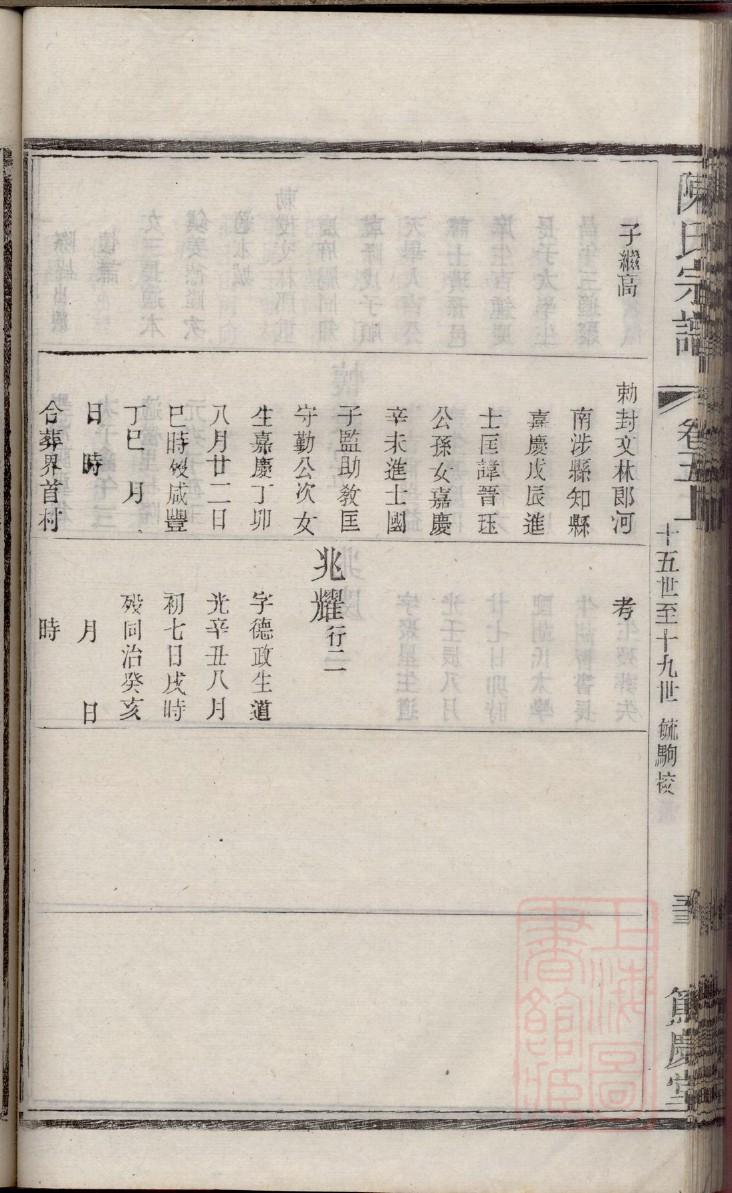 陳氏宗譜
卷五上
十五世至十九世 毓駒校
篤慶堂
子繼高
勅封文林郎河
南涉縣知縣
嘉慶戊辰進
士匡諱晉珏
公孫女嘉慶
辛未進士國
子監助教匡
守勤公次女
生嘉慶丁卯
八月廿二日
巳時歿咸豐
丁巳 月
日 時
合葬界首村
考
兆耀 行二
字德政生道
光辛丑八月
初七日戌時
歿同治癸亥
月 日
時
上海圖書館藏